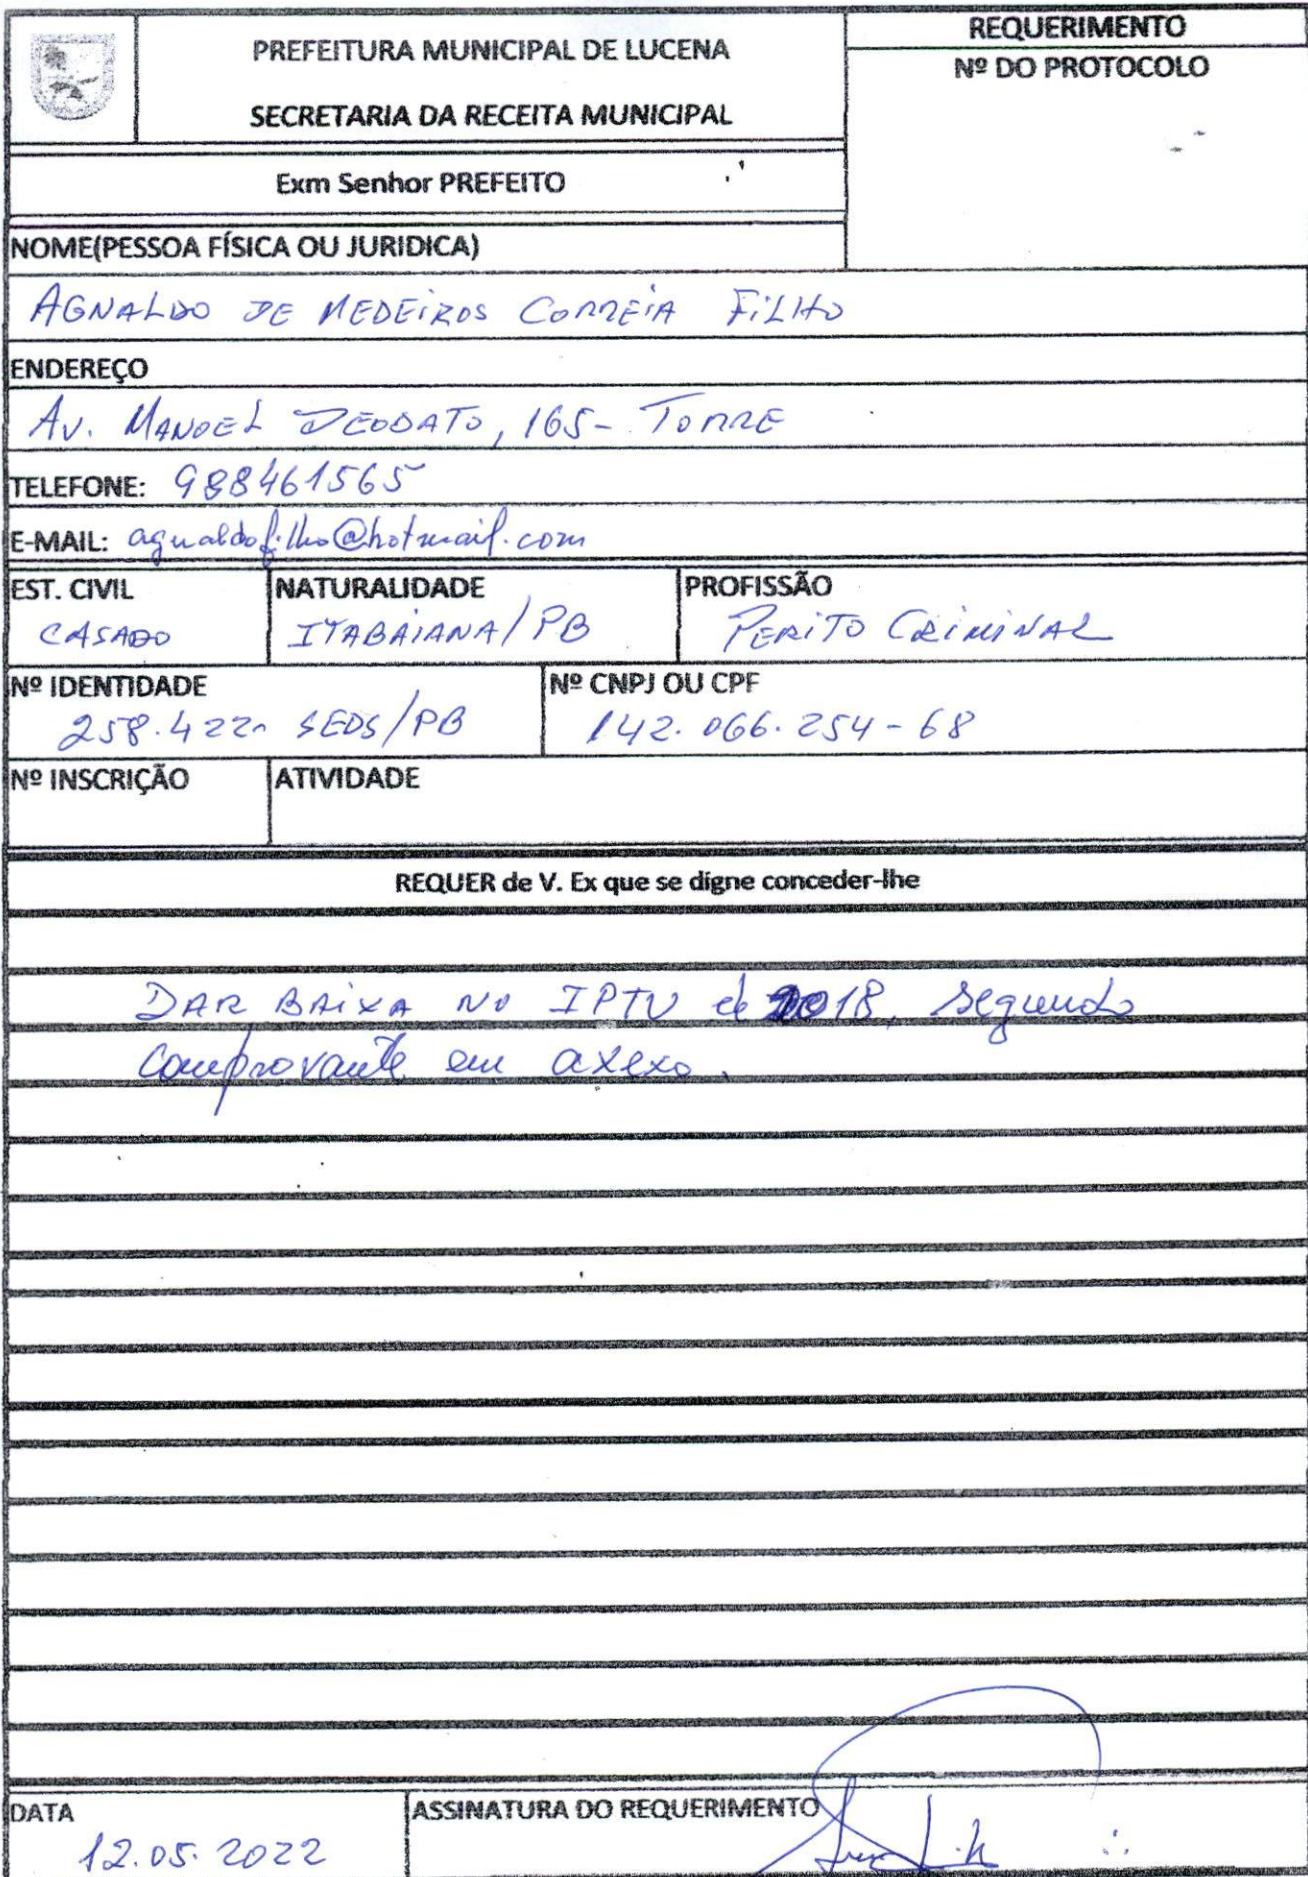 PREFEITURA MUNICIPAL DE LUCENA
SECRETARIA DA RECEITA MUNICIPAL
REQUERIMENTO
Nº DO PROTOCOLO
Exm Senhor PREFEITO
NOME(PESSOA FÍSICA OU JURIDICA)
AGNALDO DE MEDEIROS CORREIA FILHO
ENDEREÇO
AV. MANOEL DEODATO, 165- TORRE
TELEFONE: 988461565
E-MAIL: agnaldofilho@hotmail.com
EST. CIVIL NATURALIDADE PROFISSÃO
CASADO ITABAIANA/PB PERITO CRIMINAL
Nº IDENTIDADE Nº CNPJ OU CPF
258.422 SEDS/PB 142.066.254-68
Nº INSCRIÇÃO ATIVIDADE
REQUER de V. Ex que se digne conceder-lhe
DAR BAIXA NO IPTU de 2018, segundo
comprovante em axexo.
DATA ASSINATURA DO REQUERIMENTO
12.05.2022